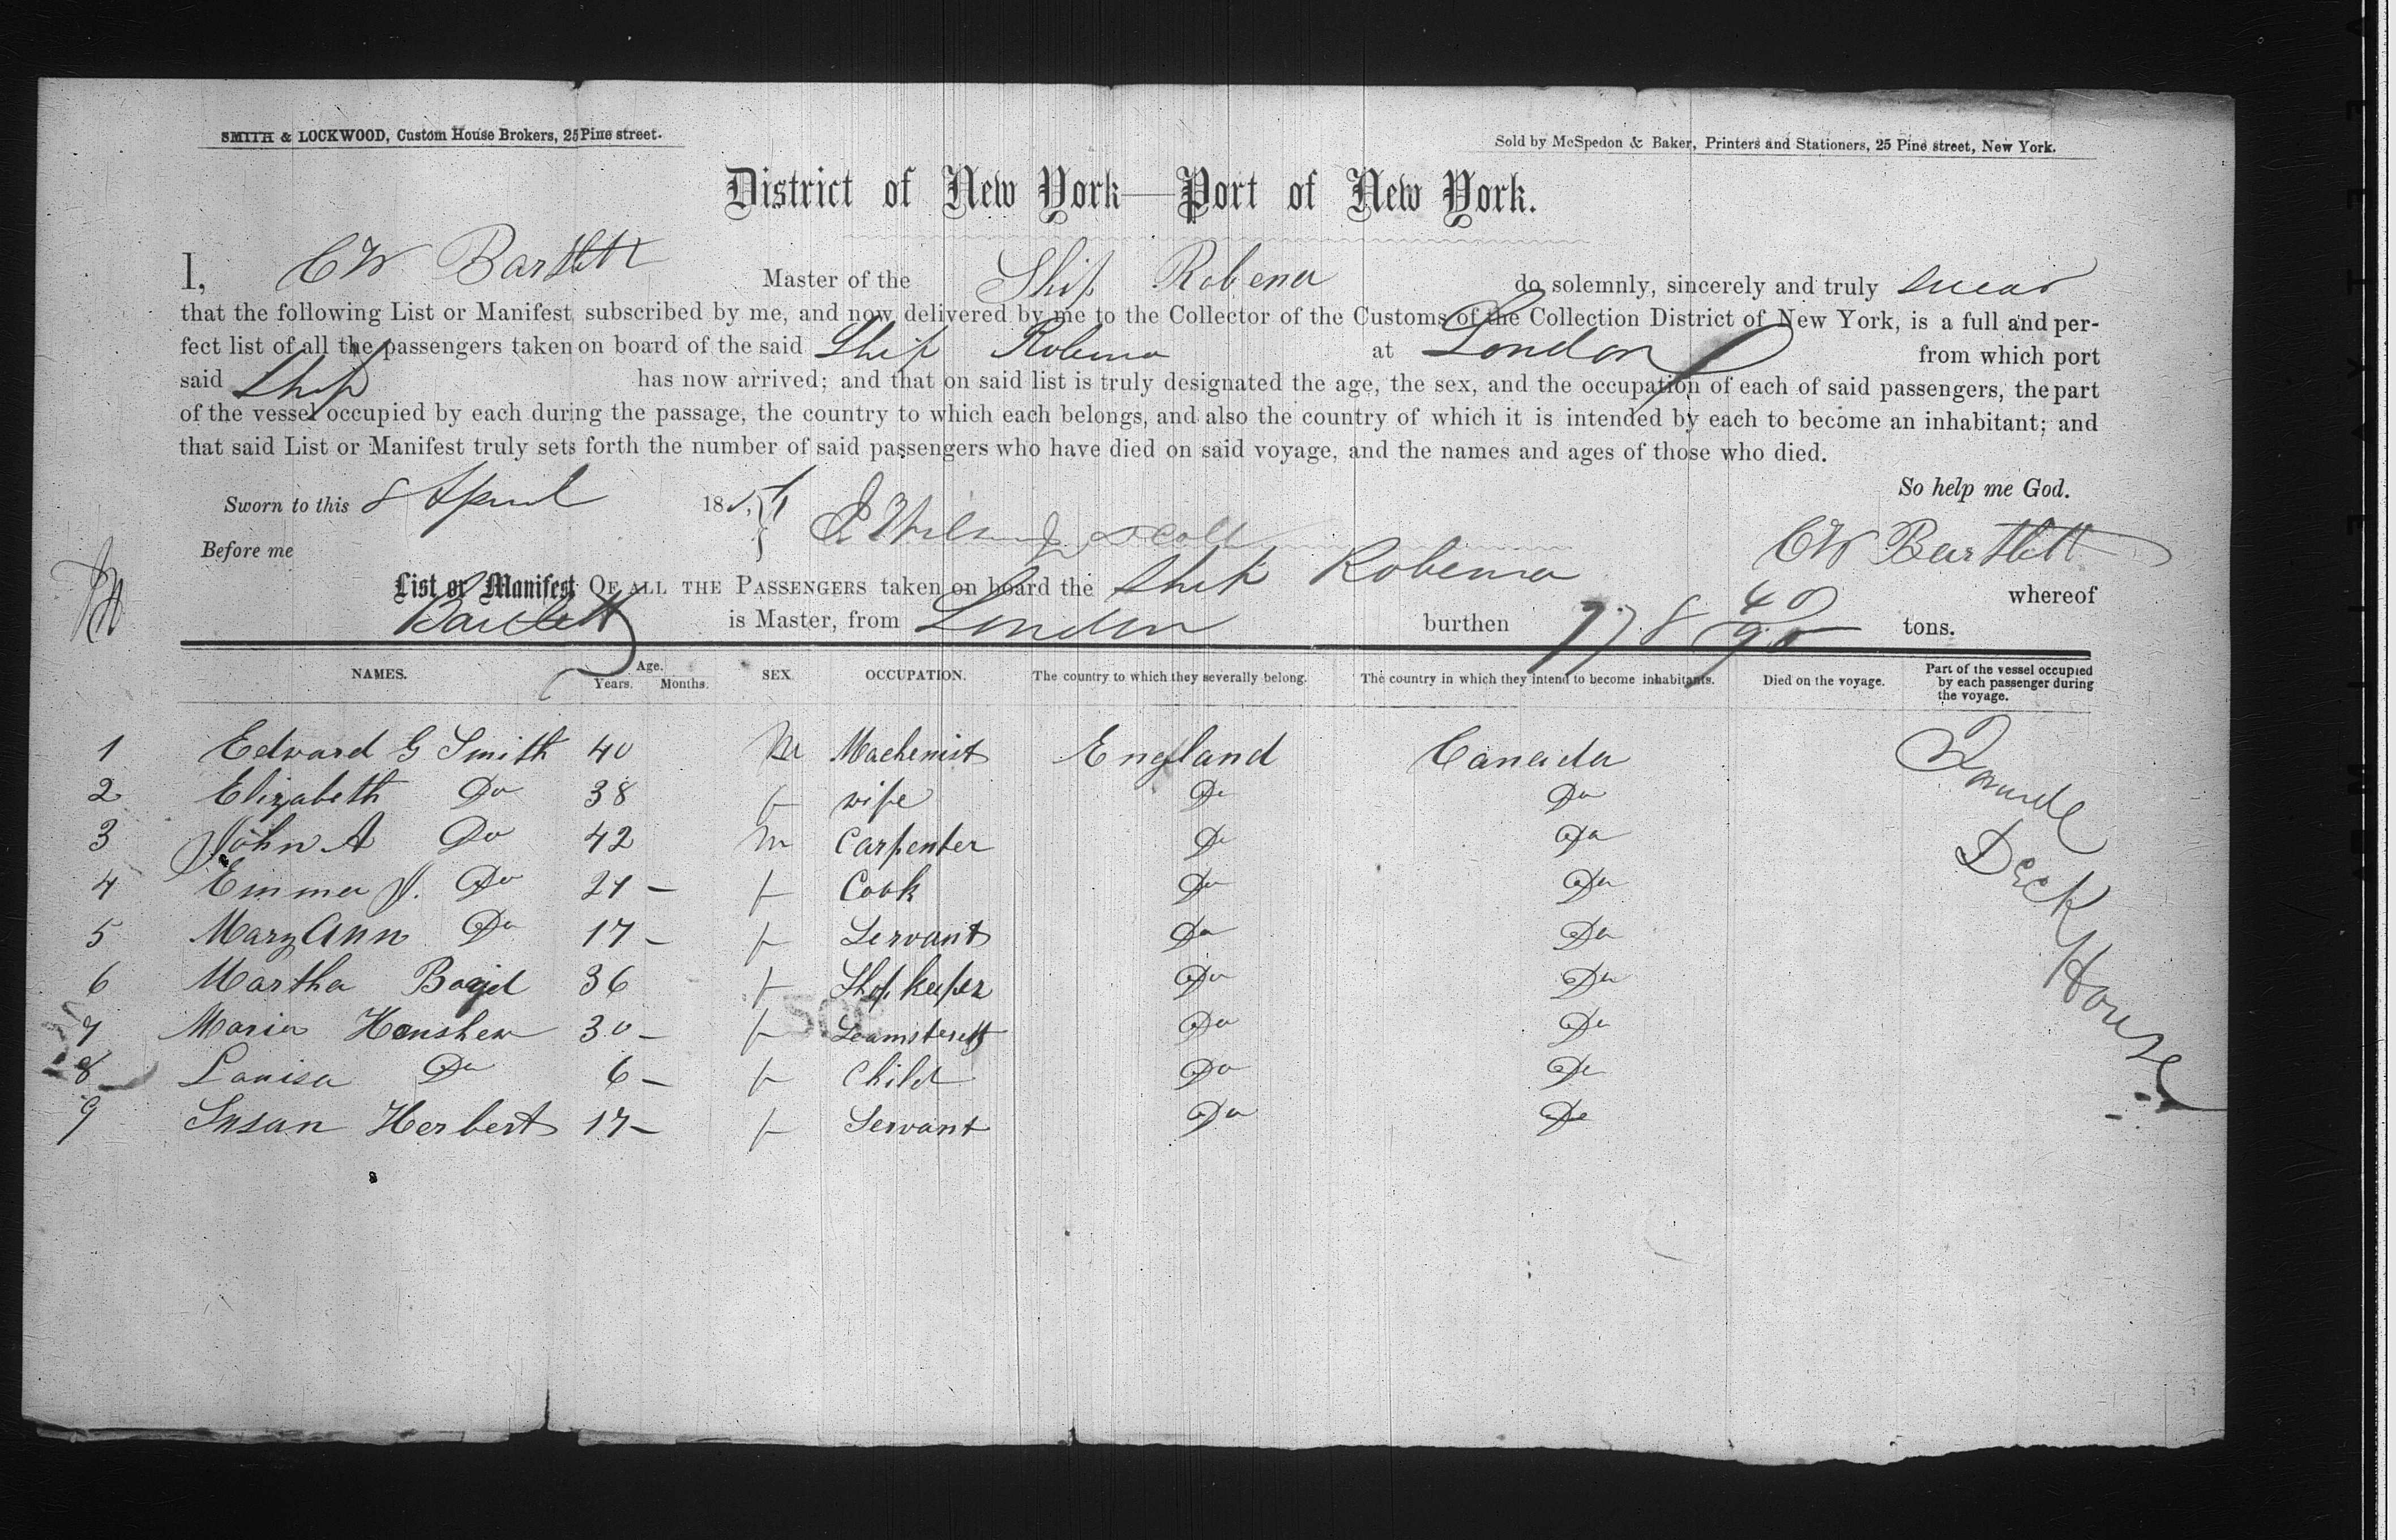 SMITH & LOCKWOOD, Custom House Brokers, 25 Pine street.
Sold by McSpedon & Baker, Printers and Stationers, 25 Pine street, New York.
District of New York—Port of New York.
I, CW Bartlett Master of the Ship Robena do solemnly, sincerely and truly swear
that the following List or Manifest subscribed by me, and now delivered by me to the Collector of the Customs of the Collection District of New York, is a full and per-
fect list of all the passengers taken on board of the said Ship Robena at London from which port
said Ship has now arrived; and that on said list is truly designated the age, the sex, and the occupation of each of said passengers, the part
of the vessel occupied by each during the passage, the country to which each belongs, and also the country of which it is intended by each to become an inhabitant; and
that said List or Manifest truly sets forth the number of said passengers who have died on said voyage, and the names and ages of those who died.
So help me God.
Sworn to this 8 April 185
Before me
CW Bartlett
List or Manifest OF ALL THE PASSENGERS taken on board the Ship Robena whereof
Bartlett is Master, from London burthen 778 40/95 tons.
NAMES. Age. Years. Months. SEX. OCCUPATION. The country to which they severally belong. The country in which they intend to become inhabitants. Died on the voyage. Part of the vessel occupied by each passenger during the voyage.
1 Edward G Smith 40 M Machenist England Canada
2 Elizabeth Do 38 f wife Do Do
3 John A Do 42 M Carpenter Do Do
4 Emma J. Do 21 – f Cook Do Do
5 Mary Ann Do 17 – f Servant Do Do
6 Martha Boyd 36 f Shop keeper Do Do
7 Maria Henshew 30 – f Do Do
8 Louisa Do 6 – f Child Do Do
9 Susan Herbert 17 – f Servant Do Do
Deck House